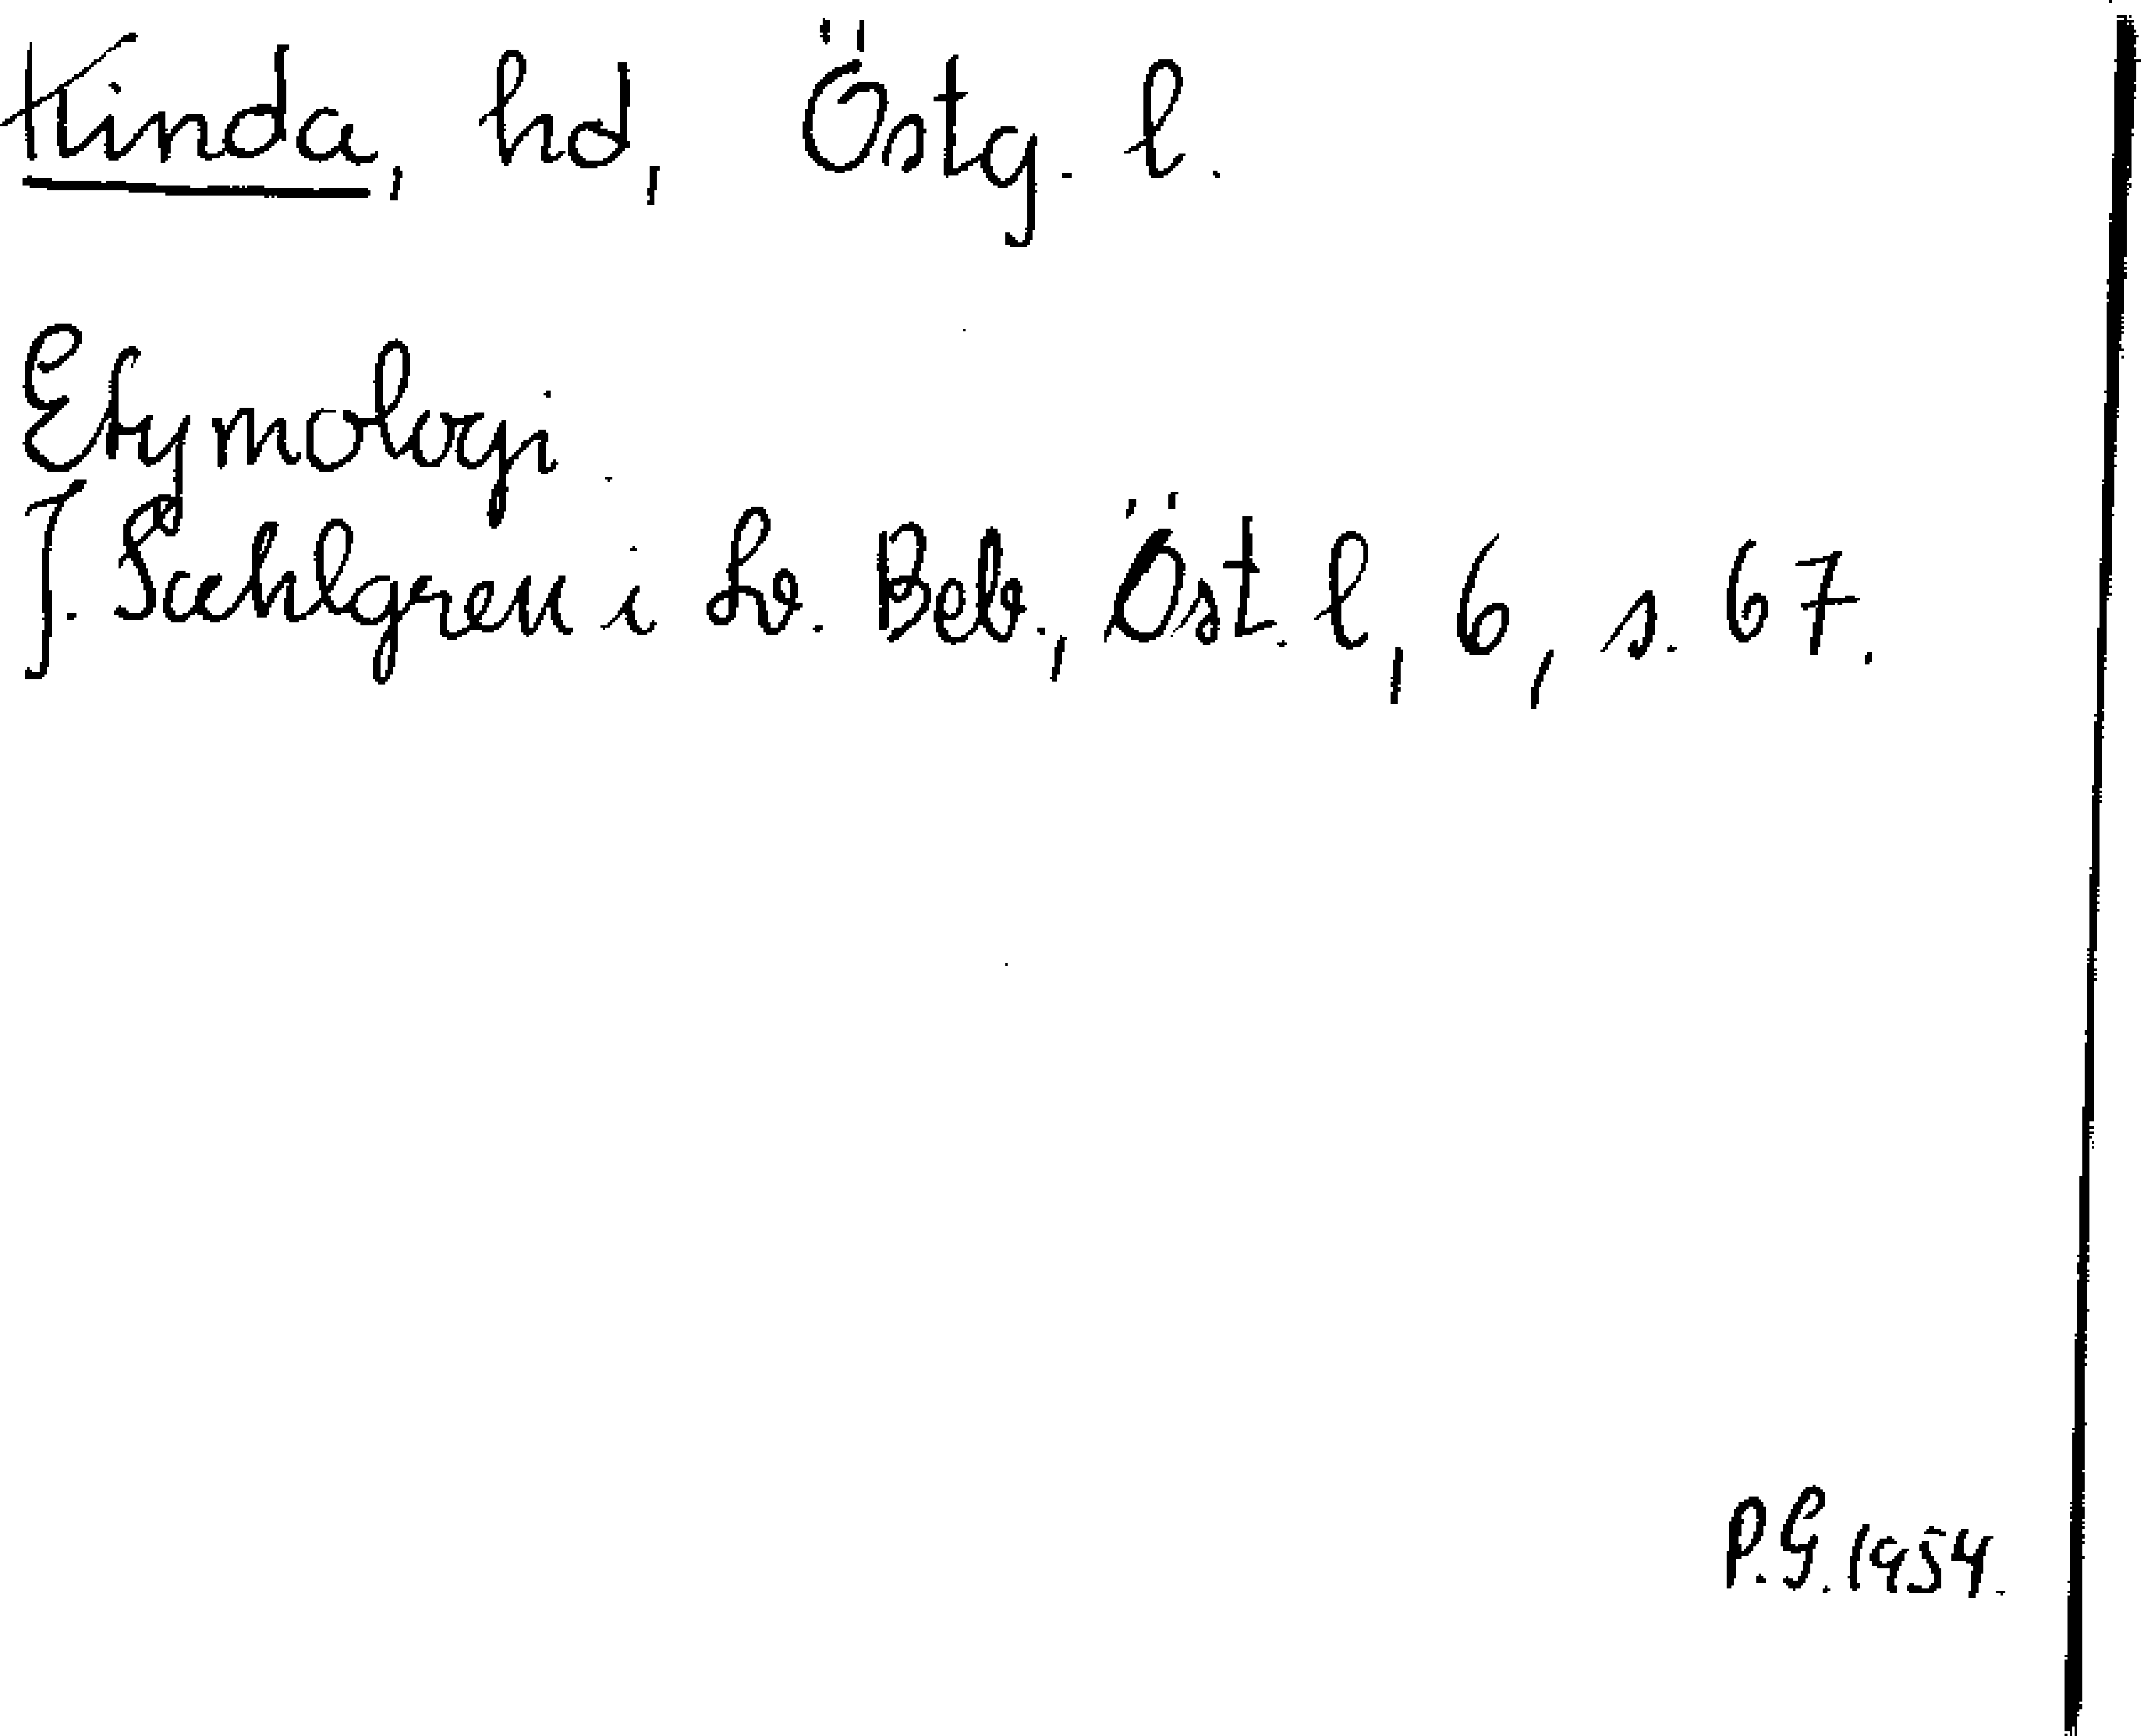 Kinda, hd, Östg. l.
Etymologi.
J. Sahlgren i Sv. Beb., Öst. l, 6, s. 67.
P.G. 1954.